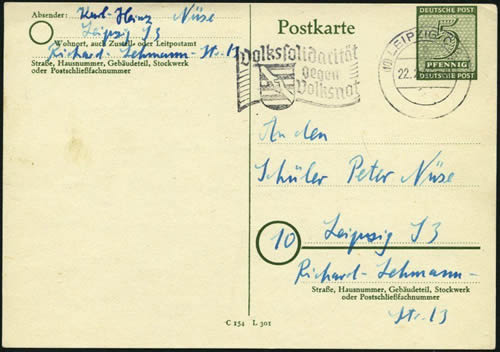 Absender: Karl-Heinz Nüse
Leipzig S3
Wohnort, auch Zustell- oder Leitpostamt
Richard-Lehmann-Str. 13
Straße, Hausnummer, Gebäudeteil, Stockwerk
oder Postschließfachnummer
Postkarte
Volkssolidarität
gegen
Volksnot
LEIPZIG
22.
DEUTSCHE POST
5
PFENNIG
DEUTSCHE POST
An den
Schüler Peter Nüse
10 Leipzig S3
Richard-Lehmann-
Straße, Hausnummer, Gebäudeteil, Stockwerk
oder Postschließfachnummer
Str. 13
C 154 L 301